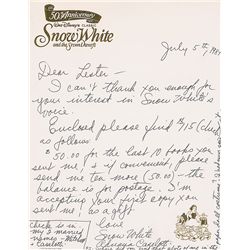 50th Anniversary
Walt Disney's CLASSIC
Snow White
and the Seven Dwarfs
July 5th, 1987
Dear Lester –
I can't thank you enough for
your interest in Snow White's
voice.
Enclosed please find $75 (check)
as follows
$50.00 for the last 10 books you
sent me, & if convenient, please
send me ten more (50.00) – the
balance is for postage. I'm
accepting your first copy you
sent me, as a gift.
Love
Snow White
Adriana Caselotti
Check is in
my 2 married
names –